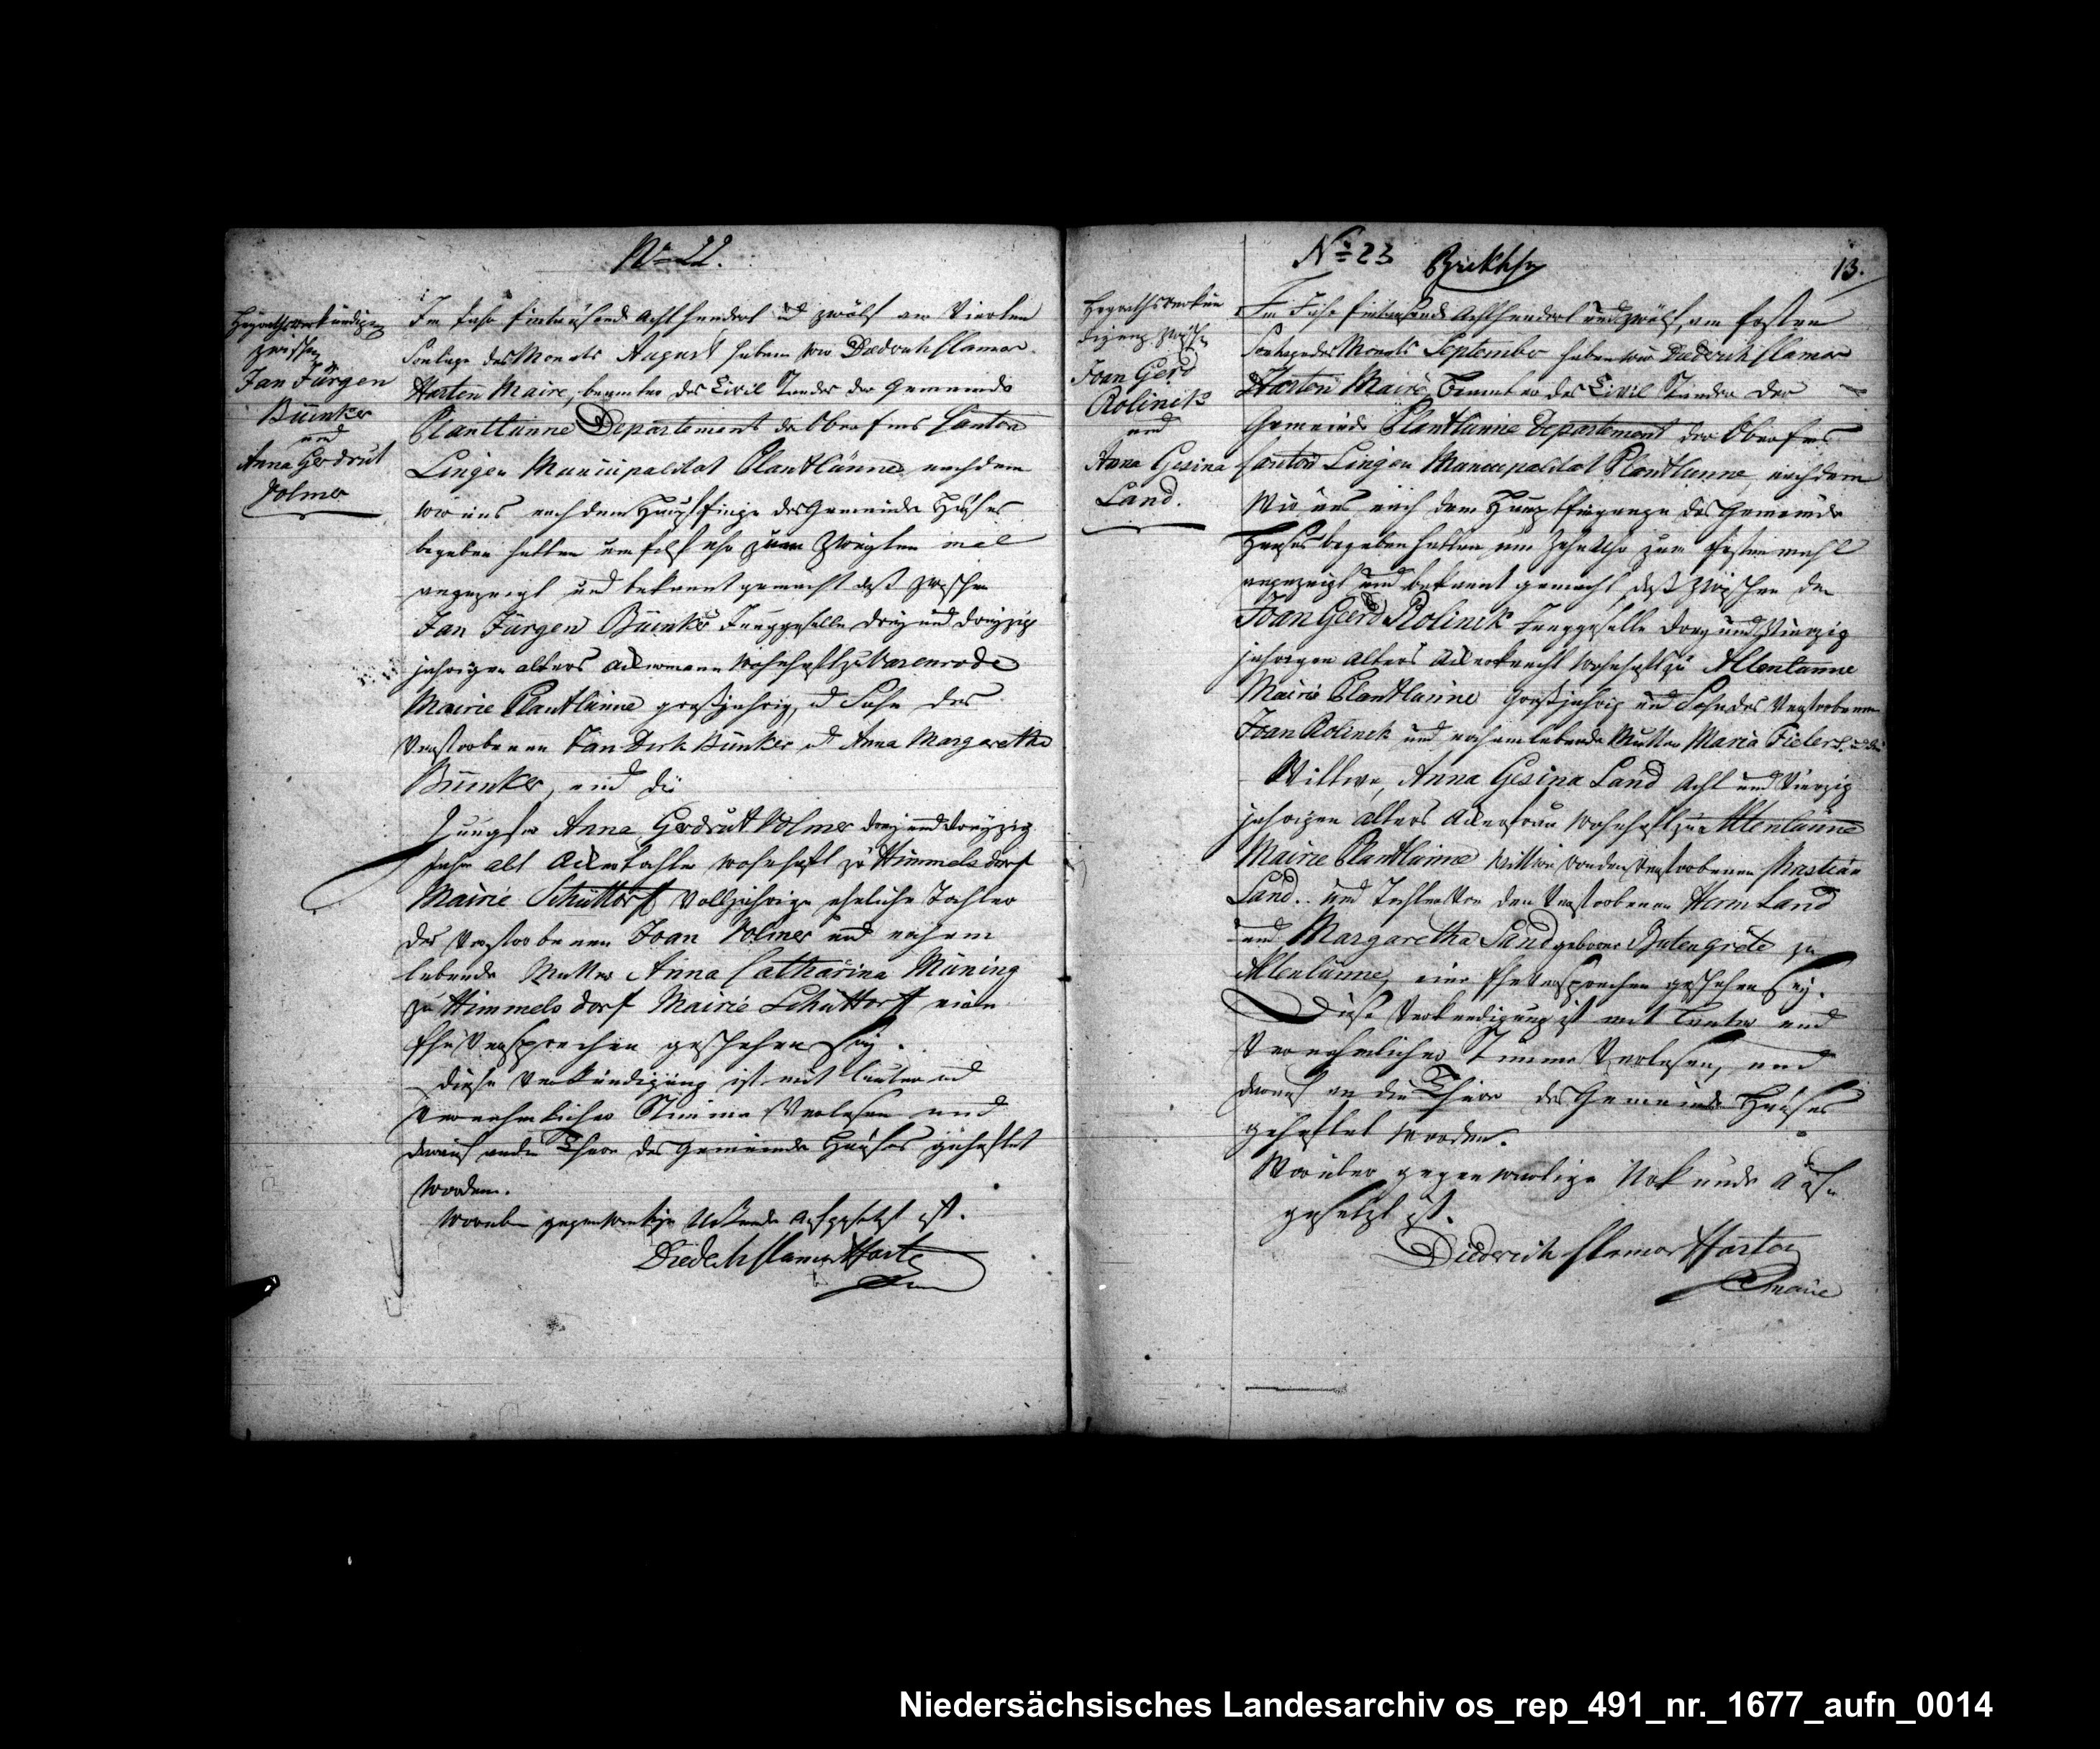 No 22.
Heyrathsverkündigung
zwischen
Jan Jürgen
Büenker
und
Anna Gerdrut
Volmer
Im Jahr Eintausend Acht hundert und zwölf am Vierten
Sontage des Monats August haben wir Diedrich Flamor
Harten Maire, beamter des Civil Standes der Gemeinde
Plantlünne Departement der Ober Ems Canton
Lingen Municipalität Plantlünne nachdem
wir uns nach dem Haupteingange des Gemeinde Hauses
begeben hatten um Uhr zum Zweyten mal
angezeigt und bekannt gemacht daß zwischen
Jan Jürgen Büenker Junggeselle drey und dreyzig
jahrigen alters Ackermann Wohnhaft zu Varenrode
Mairie Plantlünne großjahrig, und Sohn des
Verstorbenen Jan Dirk Bünker und Anna Margaretha
Büenker, und die
Jungfer Anna Gerdrut Volmer drey und dreyzig
Jahr alt wohnhaft zu Himmeldorf
Mairie Schüttorf Volljährige eheliche Tochter
des Verstorbenen Joan Volmer und noch am
lebende Mutter Anna Catharina Müning
zu Himmeldorf Mairie Schüttorf eine
Ehe Versprechen geschehen sey.
Diese Verkündigung ist mit lauter und
Vernehmlicher Stimme Verlesen und
darauf an die Thüre des Gemeinde Hauses geheftet
worden.
Worüber gegenwärtige Urkunde Aufgesetzt ist.
Diederich Flamor Harten
No 23
13.
Heyrathsverkün
digung zwischen
Joan Gerd
Rolinck
und
Anna Gesina
Land.
Im Jahr Eintausend Achthundert und zwölf, am Ersten
Sontage des Monats September haben wir Diederich Flamor
Harten Maire, Beamter des Civil Standes der
Gemeinde Plantlünne Departement der Ober Ems
Canton Lingen Municipalität Plantlünne, nachdem
Wir uns nach dem Haupteingange des Gemeinde
Hauses begeben hatten um Zehn Uhr zum Ersten mahl
angezeigt und bekannt gemacht, daß zwischen den
Joan Geerd Rolinck Junggeselle drey und Vierzig
jahrigen Alters Ackerknecht Wohnhaft zu Altenlünne
Mairie Plantlünne Großjahrig und Sohn des Verstorbenen
Joan Rolinck und noch am lebende Mutter Maria und die
Wittwe, Anna Gesina Land Acht und Vierzig
jahrigen Alters Ackersfrau Wohnhaft zu Altenlünne
Mairie Plantlünne Wittwe von den Verstorbenen Christian
Land.. und Tochter Von den Verstorbenen Herm Land
und Margaretha Land geborne Butengröte zu
Altenlünne, eine Ehe Versprechen geschehen sey.
Diese Verkündigung ist mit lauter und
Vernehmlicher Stimme Verlesen, und
darauf an die Thüre des Gemeinde Hauses
geheftet worden.
Worüber gegenwärtige Urkunde Auf
gesetzt ist.
Diederich Flamor Harten
maire
Niedersächsisches Landesarchiv os_rep_491_nr._1677_aufn_0014